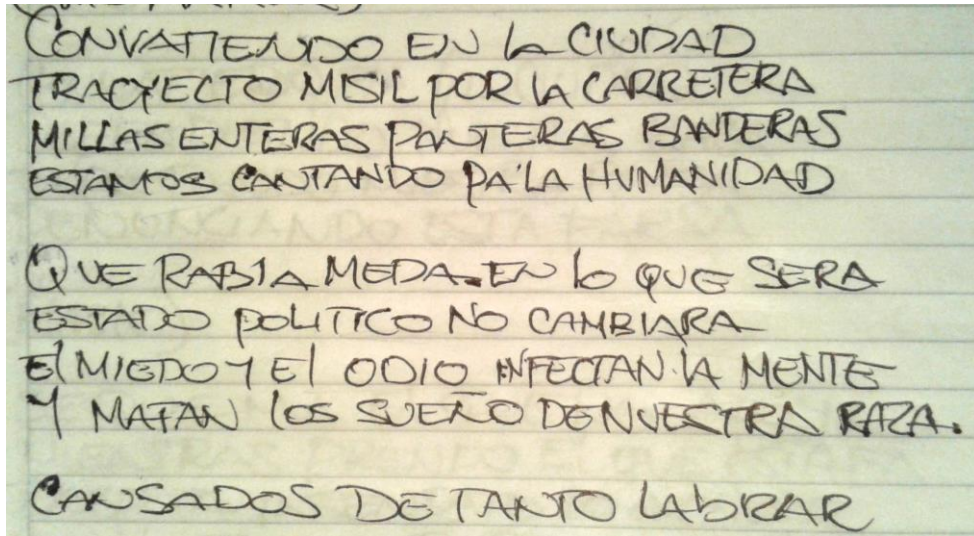 CONVATIENDO EN LA CIUDAD
TRACYECTO MISIL POR LA CARRETERA
MILLAS ENTERAS PANTERAS BANDERAS
ESTAMOS CANTANDO PA'LA HUMANIDAD
QUE RABIA MEDA. EN lo QUE SERA
ESTADO POLITICO NO CAMBIARA
El MIEDO Y El ODIO INFECTAN LA MENTE
Y MATAN LOS SUEÑO DE NUESTRA RAZA.
CANSADOS DE TANTO LABRAR